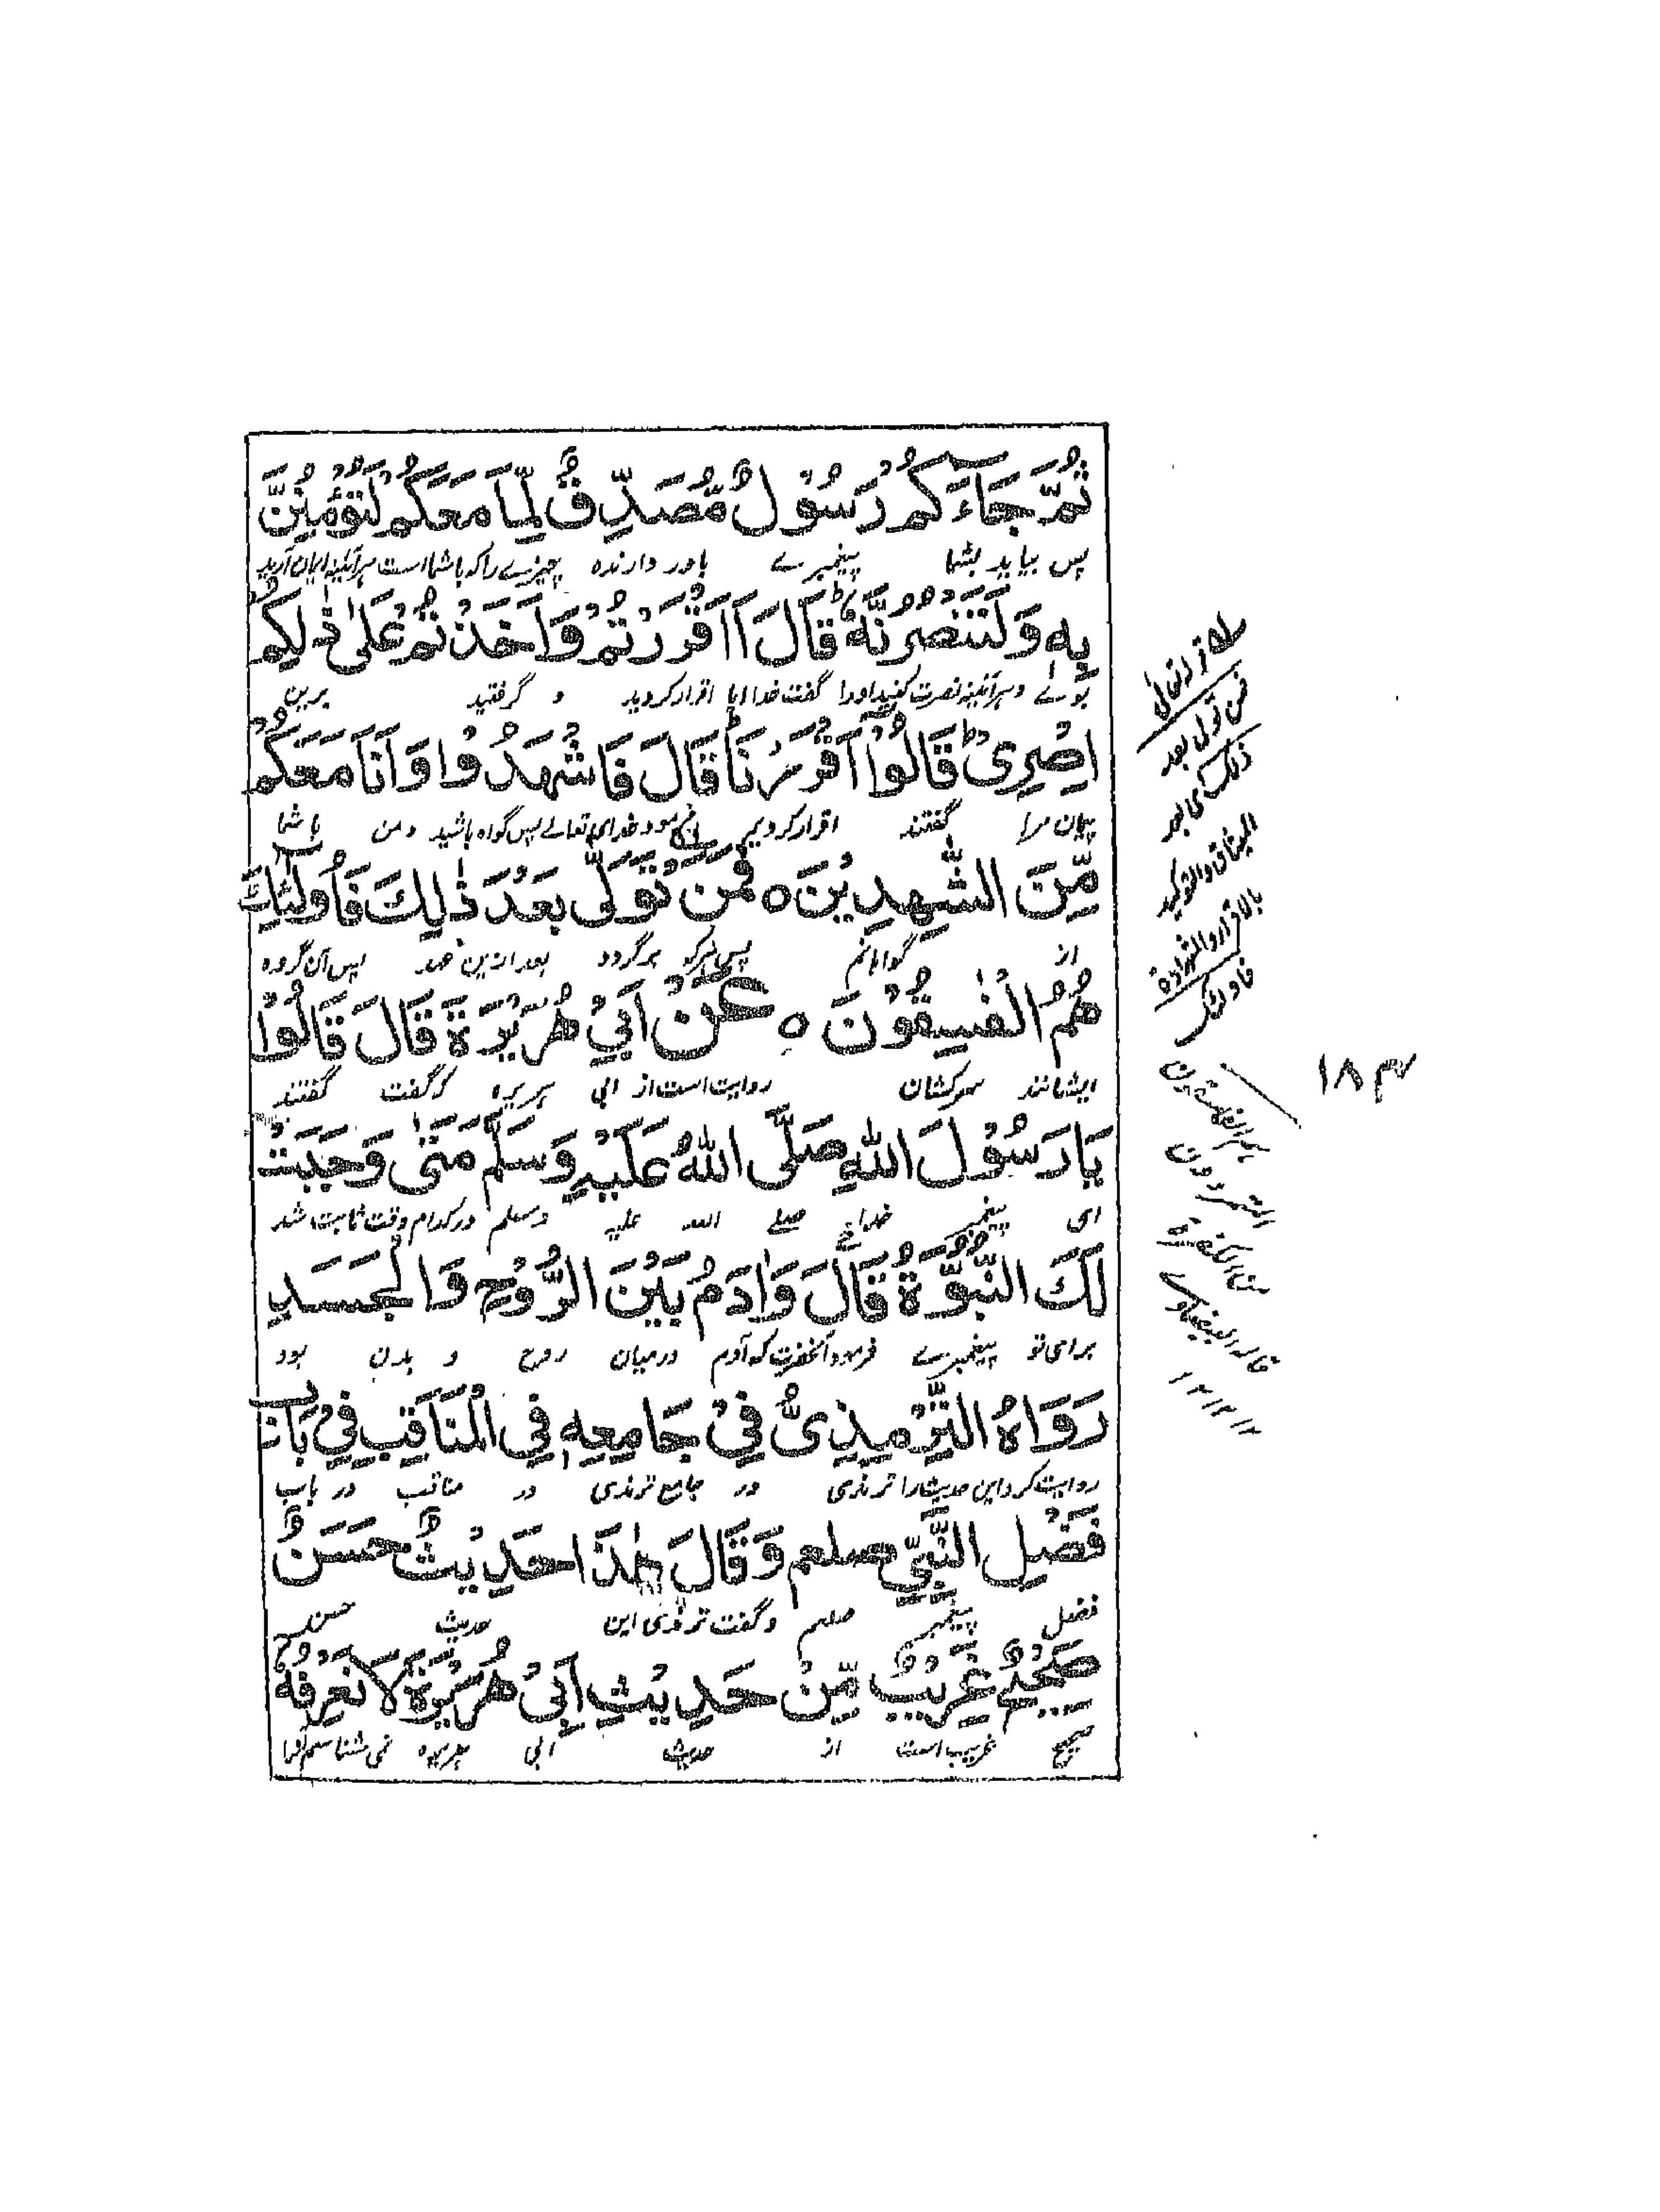 ثُمَّ جَآءَكُمْ رَسُوْلٌ مُّصَدِّقٌ لِّمَا مَعَكُمْ لَتُؤْمِنُنَّ
پس بیاید بشما پیغمبرے باور دارنده چیزے را که با شما است هرآئینه ایمان آرید
بِهٖ وَلَتَنْصُرُنَّهٗ ؕ قَالَ ءَاَقْرَرْتُمْ وَاَخَذْتُمْ عَلٰى ذٰلِكُمْ
بوے و هرآئینه نصرت کنید او را گفت خدا ایا اقرار کردید و گرفتید برین
اِصْرِىْ ؕ قَالُوْٓا اَقْرَرْنَا قَالَ فَاشْهَدُوْا وَاَنَا مَعَكُمْ
پیمان مرا گفتند اقرار کردیم فرمود خدای تعالے پس گواه باشید و من با شما
مِّنَ الشّٰهِدِيْنَ ه فَمَنْ تَوَلّٰى بَعْدَ ذٰلِكَ فَاُولٰٓئِكَ
از گواهانم پس هرکه برگردد بعد ازین عهد پس آن گروه
هُمُ الْفٰسِقُوْنَ ه عَنْ اَبِيْ هُرَيْرَةَ قَالَ قَالُوْا
ایشانند سرکشان روایت است از ابی هریره که گفت گفتند
يَا رَسُوْلَ اللهِ صَلَّى اللهُ عَلَيْهِ وَسَلَّمَ مَتٰى وَجَبَتْ
ای پیغمبر خدا صلے الله علیه وسلم در کدام وقت ثابت شد
لَكَ النُّبُوَّةُ قَالَ وَاٰدَمُ بَيْنَ الرُّوْحِ وَالْجَسَدِ
برای تو پیغمبرے فرمود آنحضرت که آدم درمیان روح و بدن بود
رَوَاهُ التِّرْمِيذِىُّ فِىْ جَامِعِهٖ فِى الْمَنَاقِبِ فِىْ بَابِ
روایت کرد این حدیث را ترمذی در جامع ترمذی در مناقب در باب
فَضْلِ النَّبِيِّ صلعم وَقَالَ هٰذَا حَدِيْثٌ حَسَنٌ
فضل پیغمبر صلعم و گفت ترمذی این حدیث حسن
صَحِيْحٌ غَرِيْبٌ مِّنْ حَدِيْثِ اَبِىْ هُرَيْرَةَ لَا نَعْرِفُهٗ
صحیح غریب است از حدیث ابی هریره نمی شناسیم آنرا
قوله تعالى
فمن تولى بعد
ذلك اى بعد
الميثاق والتوكيد
بالاقرار والشهادة
فاولئك
هم الفاسقون
المتمردون
من الكفرة
قاله البيضاوى
١٢١٢١٢
١٨٣